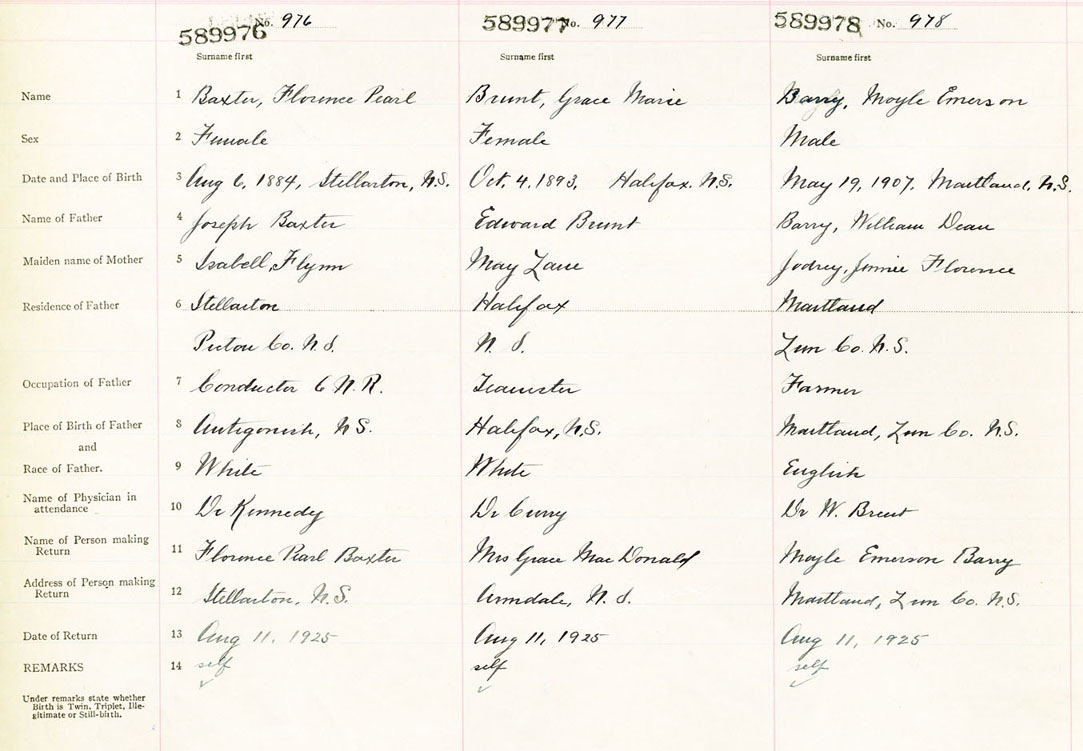 589976 No. 976 589977 No. 977 589978 No. 978
Surname first Surname first Surname first
Name 1 Baxter, Florence Pearl Brunt, Grace Marie Barry, Moyle Emerson
Sex 2 Female Female Male
Date and Place of Birth 3 Aug 6, 1884, Stellarton, N.S. Oct. 4, 1893, Halifax, N.S. May 19, 1907, Maitland, N.S.
Name of Father 4 Joseph Baxter Edward Brunt Barry, William Dean
Maiden name of Mother 5 Isabell, Flynn May Lane Jodrey, Jennie Florence
Residence of Father 6 Stellarton Halifax Maitland
Pictou Co. N.S. N. S. Lun Co. N.S.
Occupation of Father 7 Conductor C N.R. Teamster Farmer
Place of Birth of Father 8 Antigonish, N S. Halifax, N.S. Maitland, Lun Co. N.S.
and
Race of Father. 9 White White English
Name of Physician in attendance 10 Dr Kennedy Dr Curry Dr W. Brent
Name of Person making Return 11 Florence Pearl Baxter Mrs Grace MacDonald Moyle Emerson Barry
Address of Person making Return 12 Stellarton, N.S. Armdale, N. S. Maitland, Lun Co. N.S.
Date of Return 13 Aug 11, 1925 Aug 11, 1925 Aug 11, 1925
REMARKS 14 self self self
Under remarks state whether
Birth is Twin, Triplet, Ille-
gitimate or Still-birth.